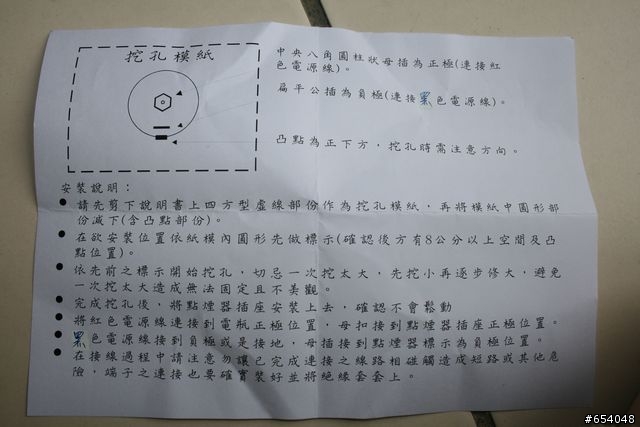 挖孔模紙
中央八角圓柱狀母插為正極(連接紅
色電源線)。
扁平公插為負極(連接黑色電源線)。
凸點為正下方，挖孔時需注意方向。
安裝說明：
● 請先剪下說明書上四方型虛線部份作為挖孔模紙，再將模紙中圓形部
份減下(含凸點部份)。
● 在欲安裝位置依紙模內圓形先做標示(確認後方有8公分以上空間及凸
點位置)。
● 依先前之標示開始挖孔，切忌一次挖太大，先挖小再逐步修大，避免
一次挖太大造成無法固定且不美觀。
● 完成挖孔後，將點煙器插座安裝上去，確認不會鬆動
● 將紅色電源線連接到電瓶正極位置，母扣接到點煙器插座正極位置。
● 黑色電源線接到負極或是接地，母插接到點煙器標示為負極位置。
● 在接線過程中請注意勿讓己完成連接之線路相碰觸造成短路或其他危
險，端子之連接也要確實裝好並將絕緣套套上。
#654048